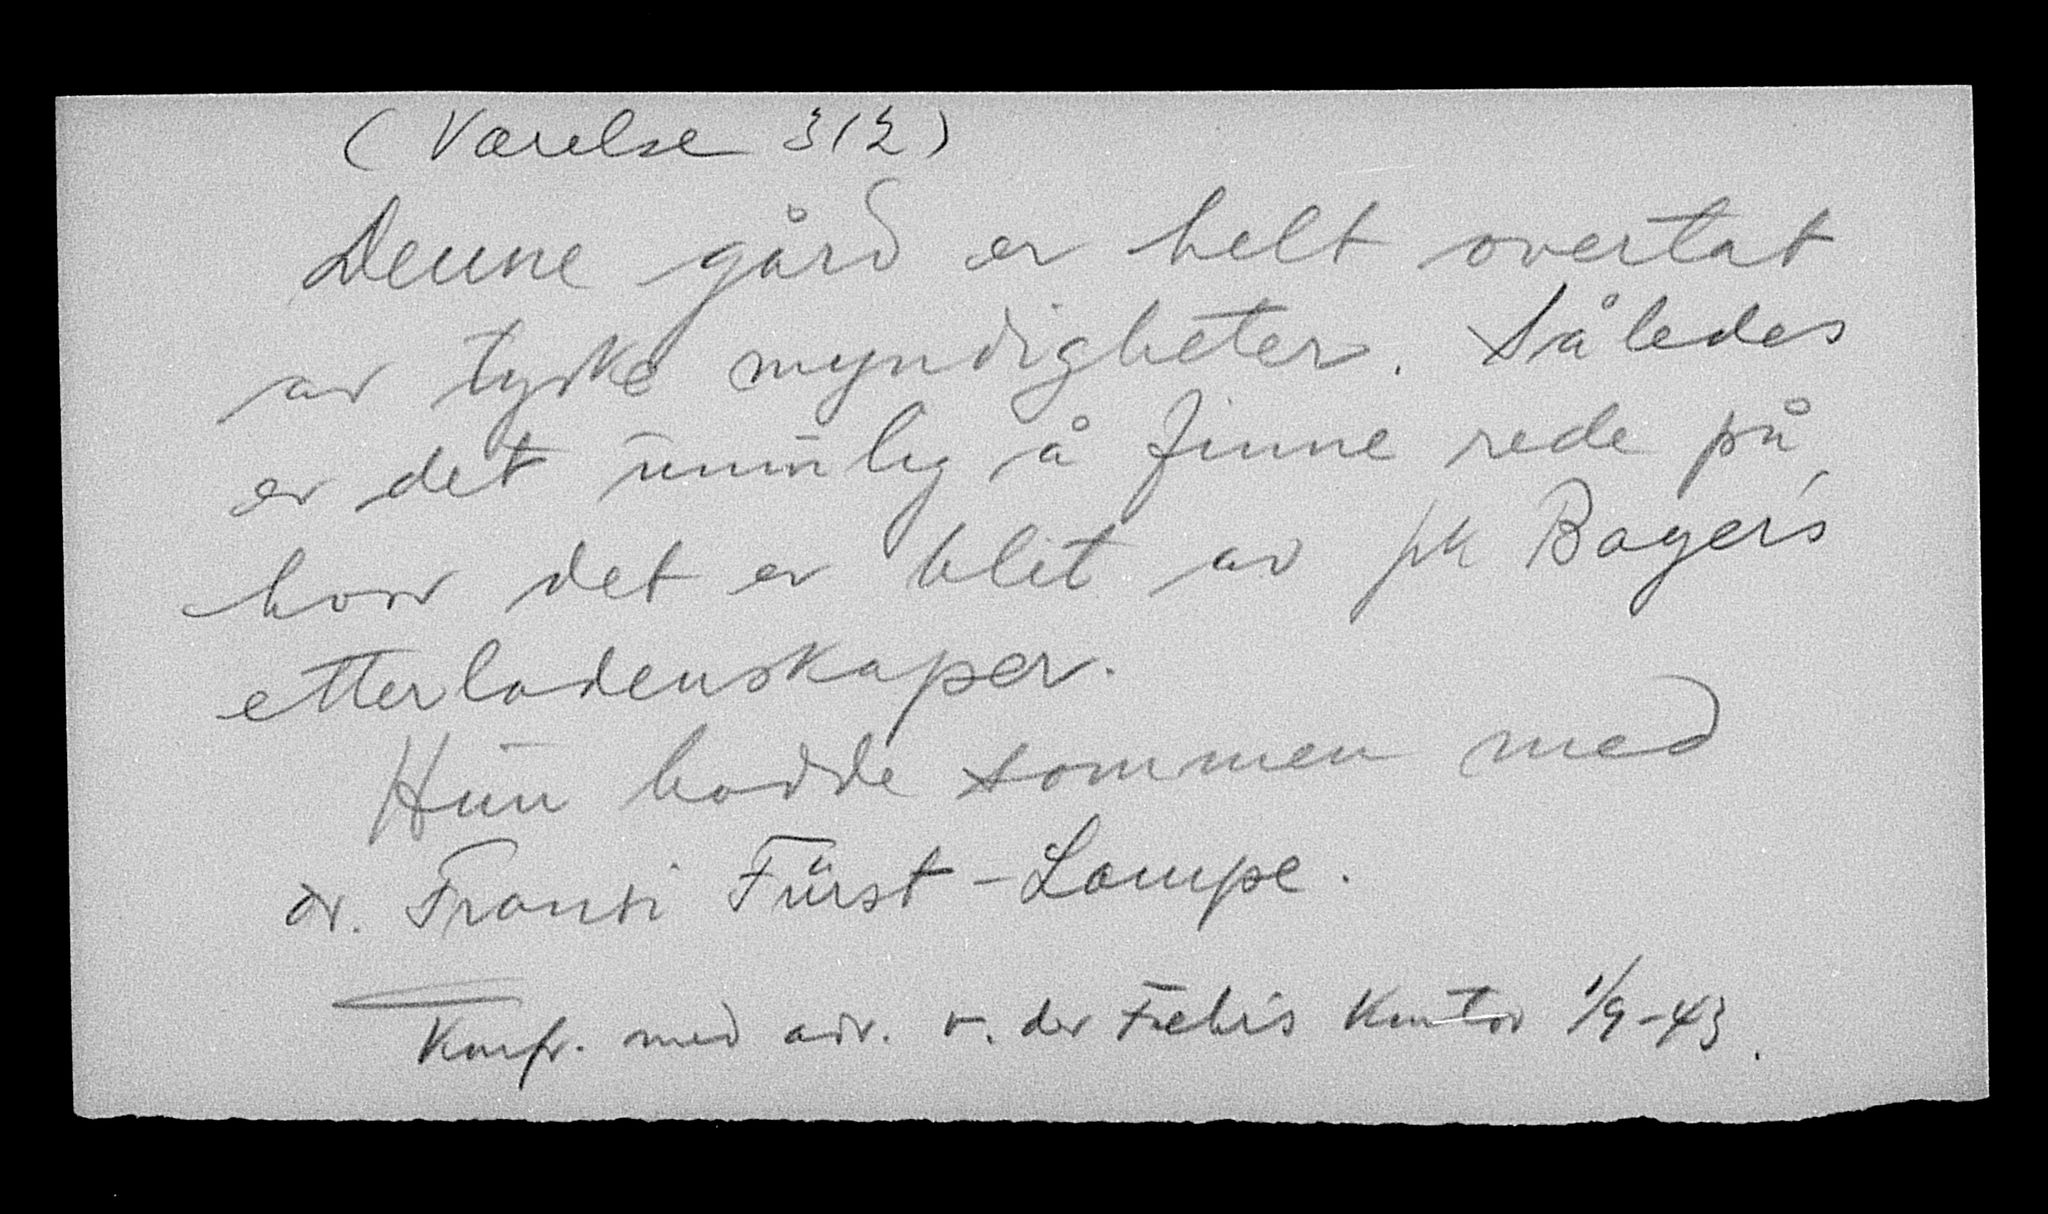 (Værelse 312)
Denne gård er helt overtat
av tyske myndigheter. Således
er det umulig å finne rede på,
hvor det er blit av frk Bayer's
etterladenskaper.
Hun bodde sammen med
dr. Fransi Fürst-Lampe.
Konfr. med adv. v. der Kontor 1/9-43.